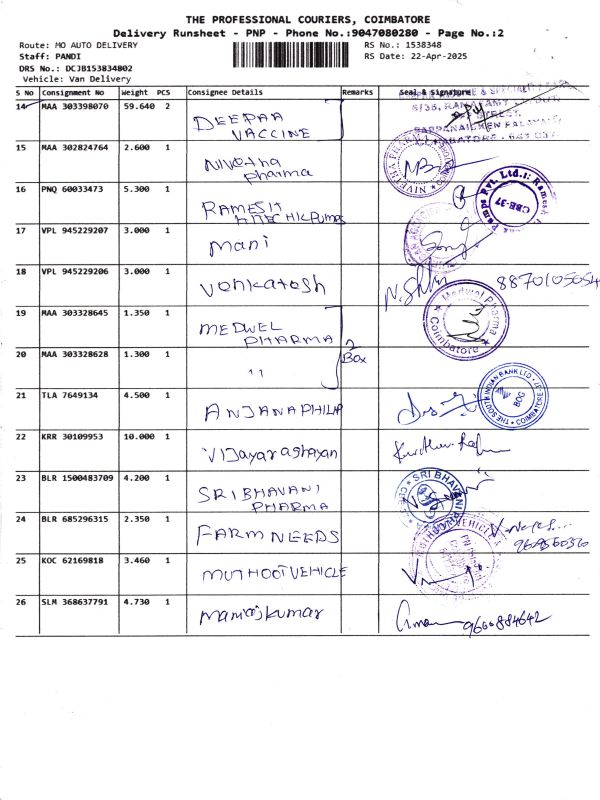 THE PROFESSIONAL COURIERS, COIMBATORE
Delivery Runsheet - PNP - Phone No.:9047080280 - Page No.:2
Route: MO AUTO DELIVERY RS No.: 1538348
Staff: PANDI RS Date: 22-Apr-2025
DRS No.: DCJB153834802
Vehicle: Van Delivery
S No Consignment No Weight PCS Consignee Details Remarks Seal & Signature
14 MAA 303398070 59.640 2 DEEPAA
VACCINE
15 MAA 302824764 2.600 1 Nivetha
pharma
NIVETHA PHARMA
16 PNQ 60033473 5.300 1 RAMESH
HITECH PUMPS
Pumps Pvt. Ltd.
CBE-37
17 VPL 945229207 3.000 1 Mani
18 VPL 945229206 3.000 1 Venkatesh 8870105054
19 MAA 303328645 1.350 1 MEDWEL
PHARMA
2
Box
Medwel Pharma
Coimbatore
20 MAA 303328628 1.300 1 11
21 TLA 7649134 4.500 1 ANJANA PHILIP
THE SOUTH INDIAN BANK LTD
COIMBATORE
22 KRR 30109953 10.000 1 Vijayaraghavan
23 BLR 1500483709 4.200 1 SRI BHAVANI
PHARMA
SRI BHAVANI
24 BLR 685296315 2.350 1 FARM NEEDS
25 KOC 62169818 3.460 1 MUTHOOT VEHICLE
26 SLM 368637791 4.730 1 Manojkumar 9600884642